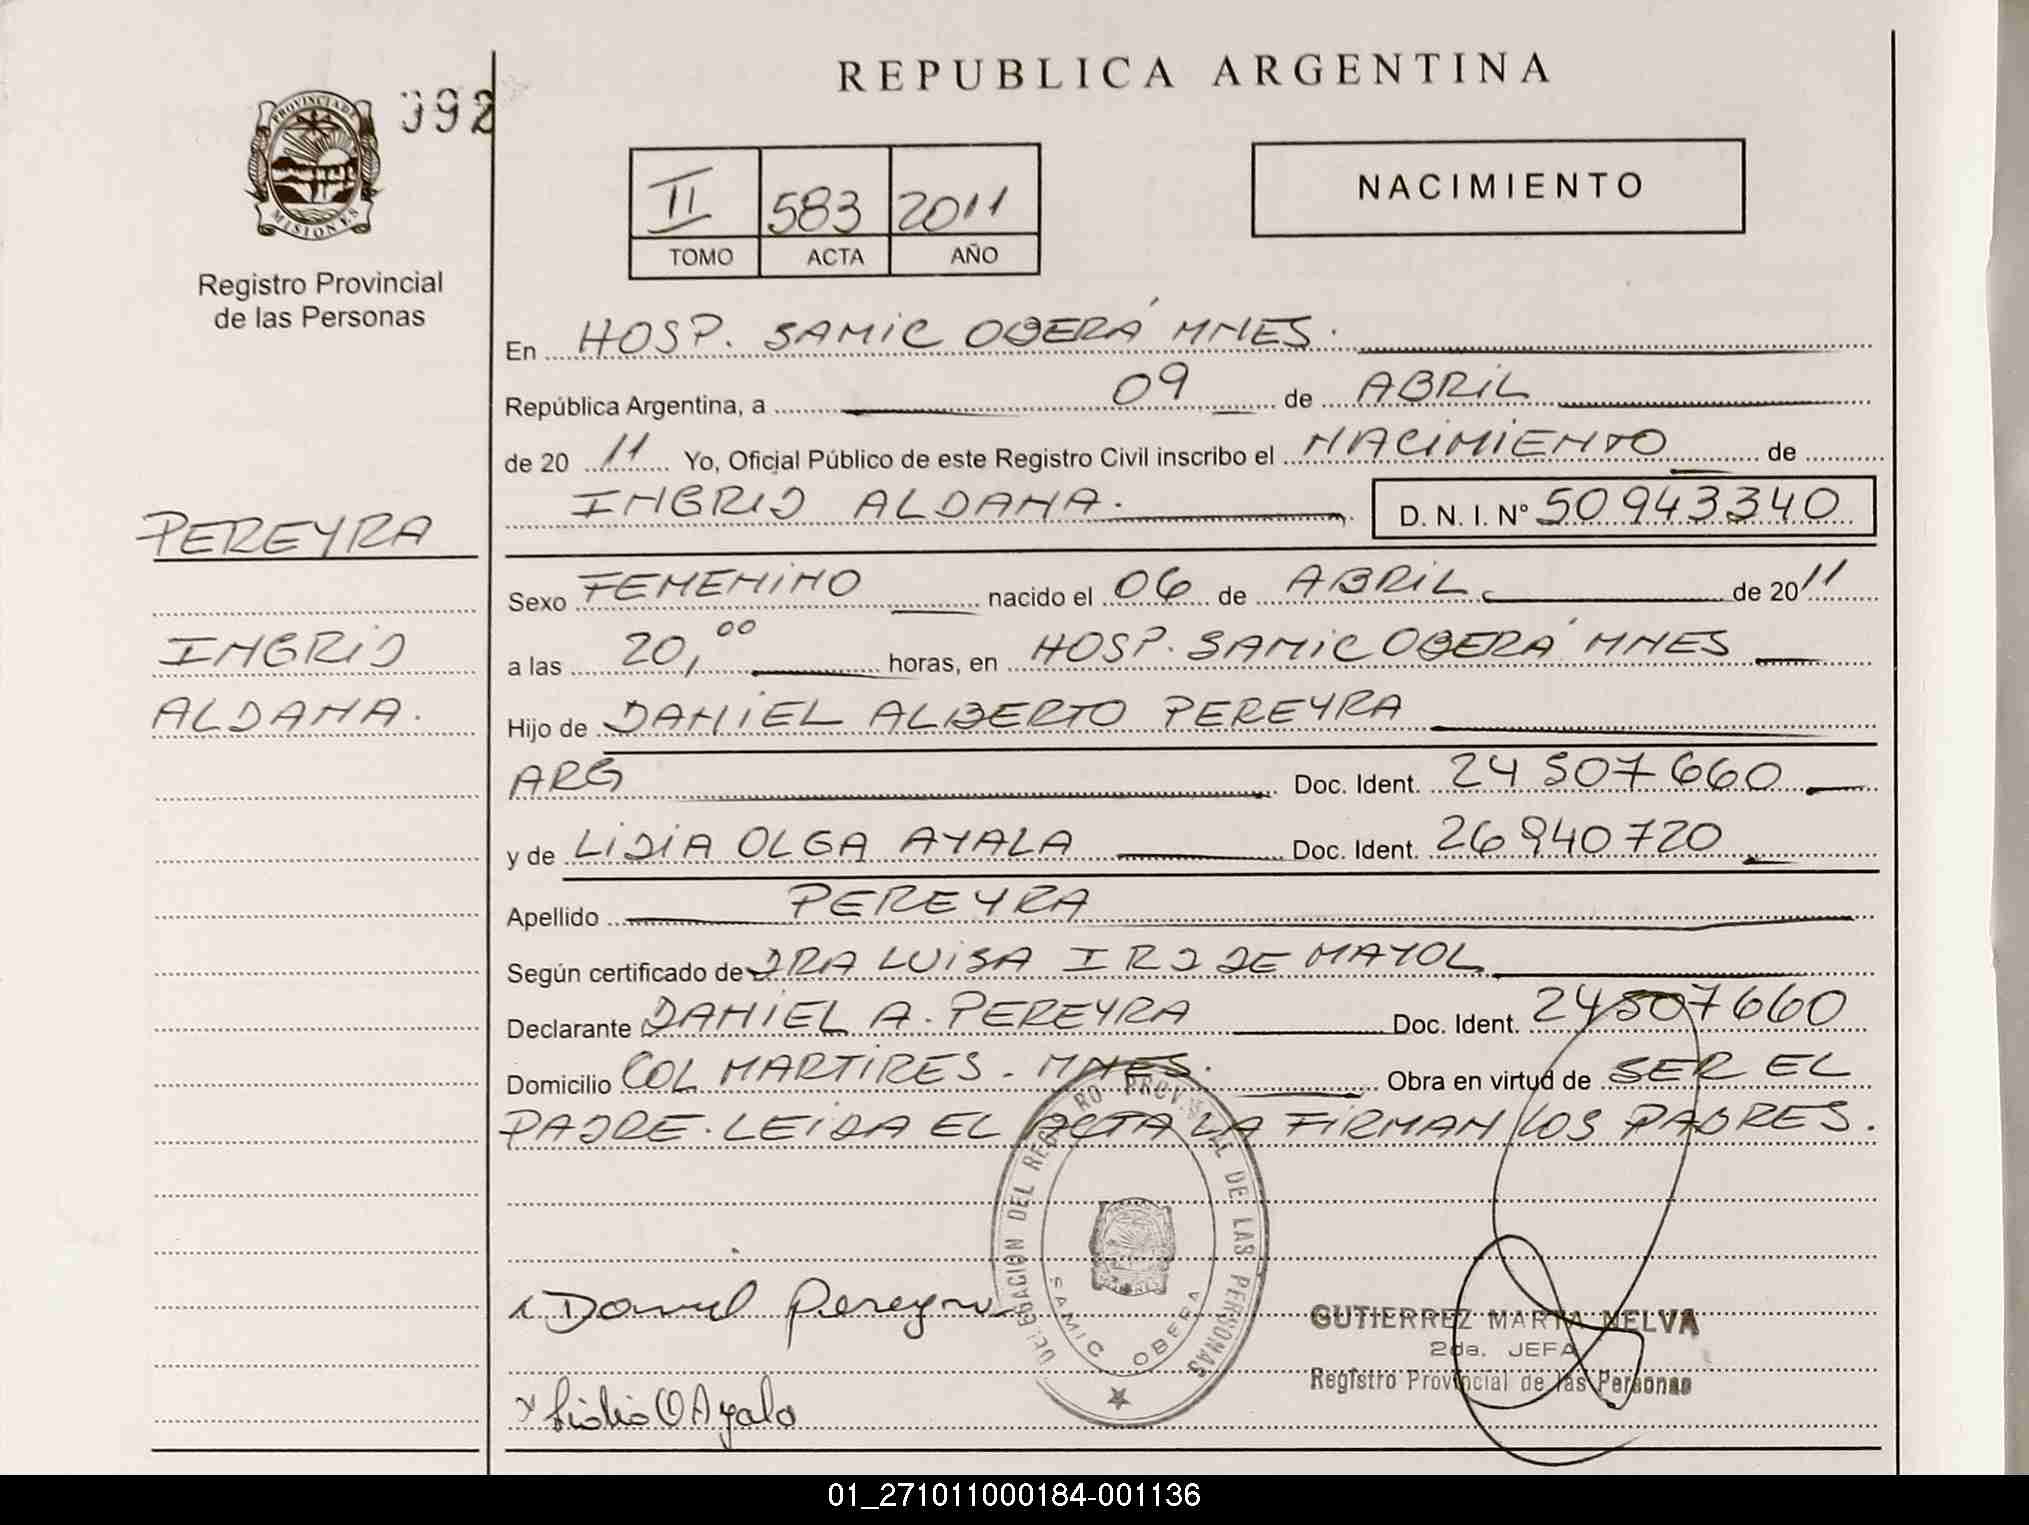 REPUBLICA ARGENTINA
PROVINCIA DE
MISIONES
392
Registro Provincial
de las Personas
II 583 2011
TOMO ACTA AÑO
NACIMIENTO
En HOSP. SAMIC OBERÁ MNES.
República Argentina, a 09 de ABRIL
de 20 11 Yo, Oficial Público de este Registro Civil inscribo el NACIMIENTO de
INGRID ALDANA. D. N. I. N° 50943340
PEREYRA
INGRID
ALDANA.
Sexo FEMENINO nacido el 06 de ABRIL de 20 11
a las 20,00 horas, en HOSP. SAMIC OBERÁ MNES
Hijo de DANIEL ALBERTO PEREYRA
ARG Doc. Ident. 24507660
y de LIDIA OLGA AYALA Doc. Ident. 26940720
Apellido PEREYRA
Según certificado de DRA LUISA IRD DE MAYOL
Declarante DANIEL A. PEREYRA Doc. Ident. 24507660
Domicilio COL MARTIRES. MNES. Obra en virtud de SER EL
PADRE. LEIDA EL ACTA LA FIRMAN LOS PADRES.
DELEGACION DEL REGISTRO PROVINCIAL DE LAS PERSONAS
SAMIC OBERA
Daniel Pereyra
Lidia O Ayala
GUTIERREZ MARTA NELVA
2da. JEFA
Registro Provincial de las Personas
01_271011000184-001136